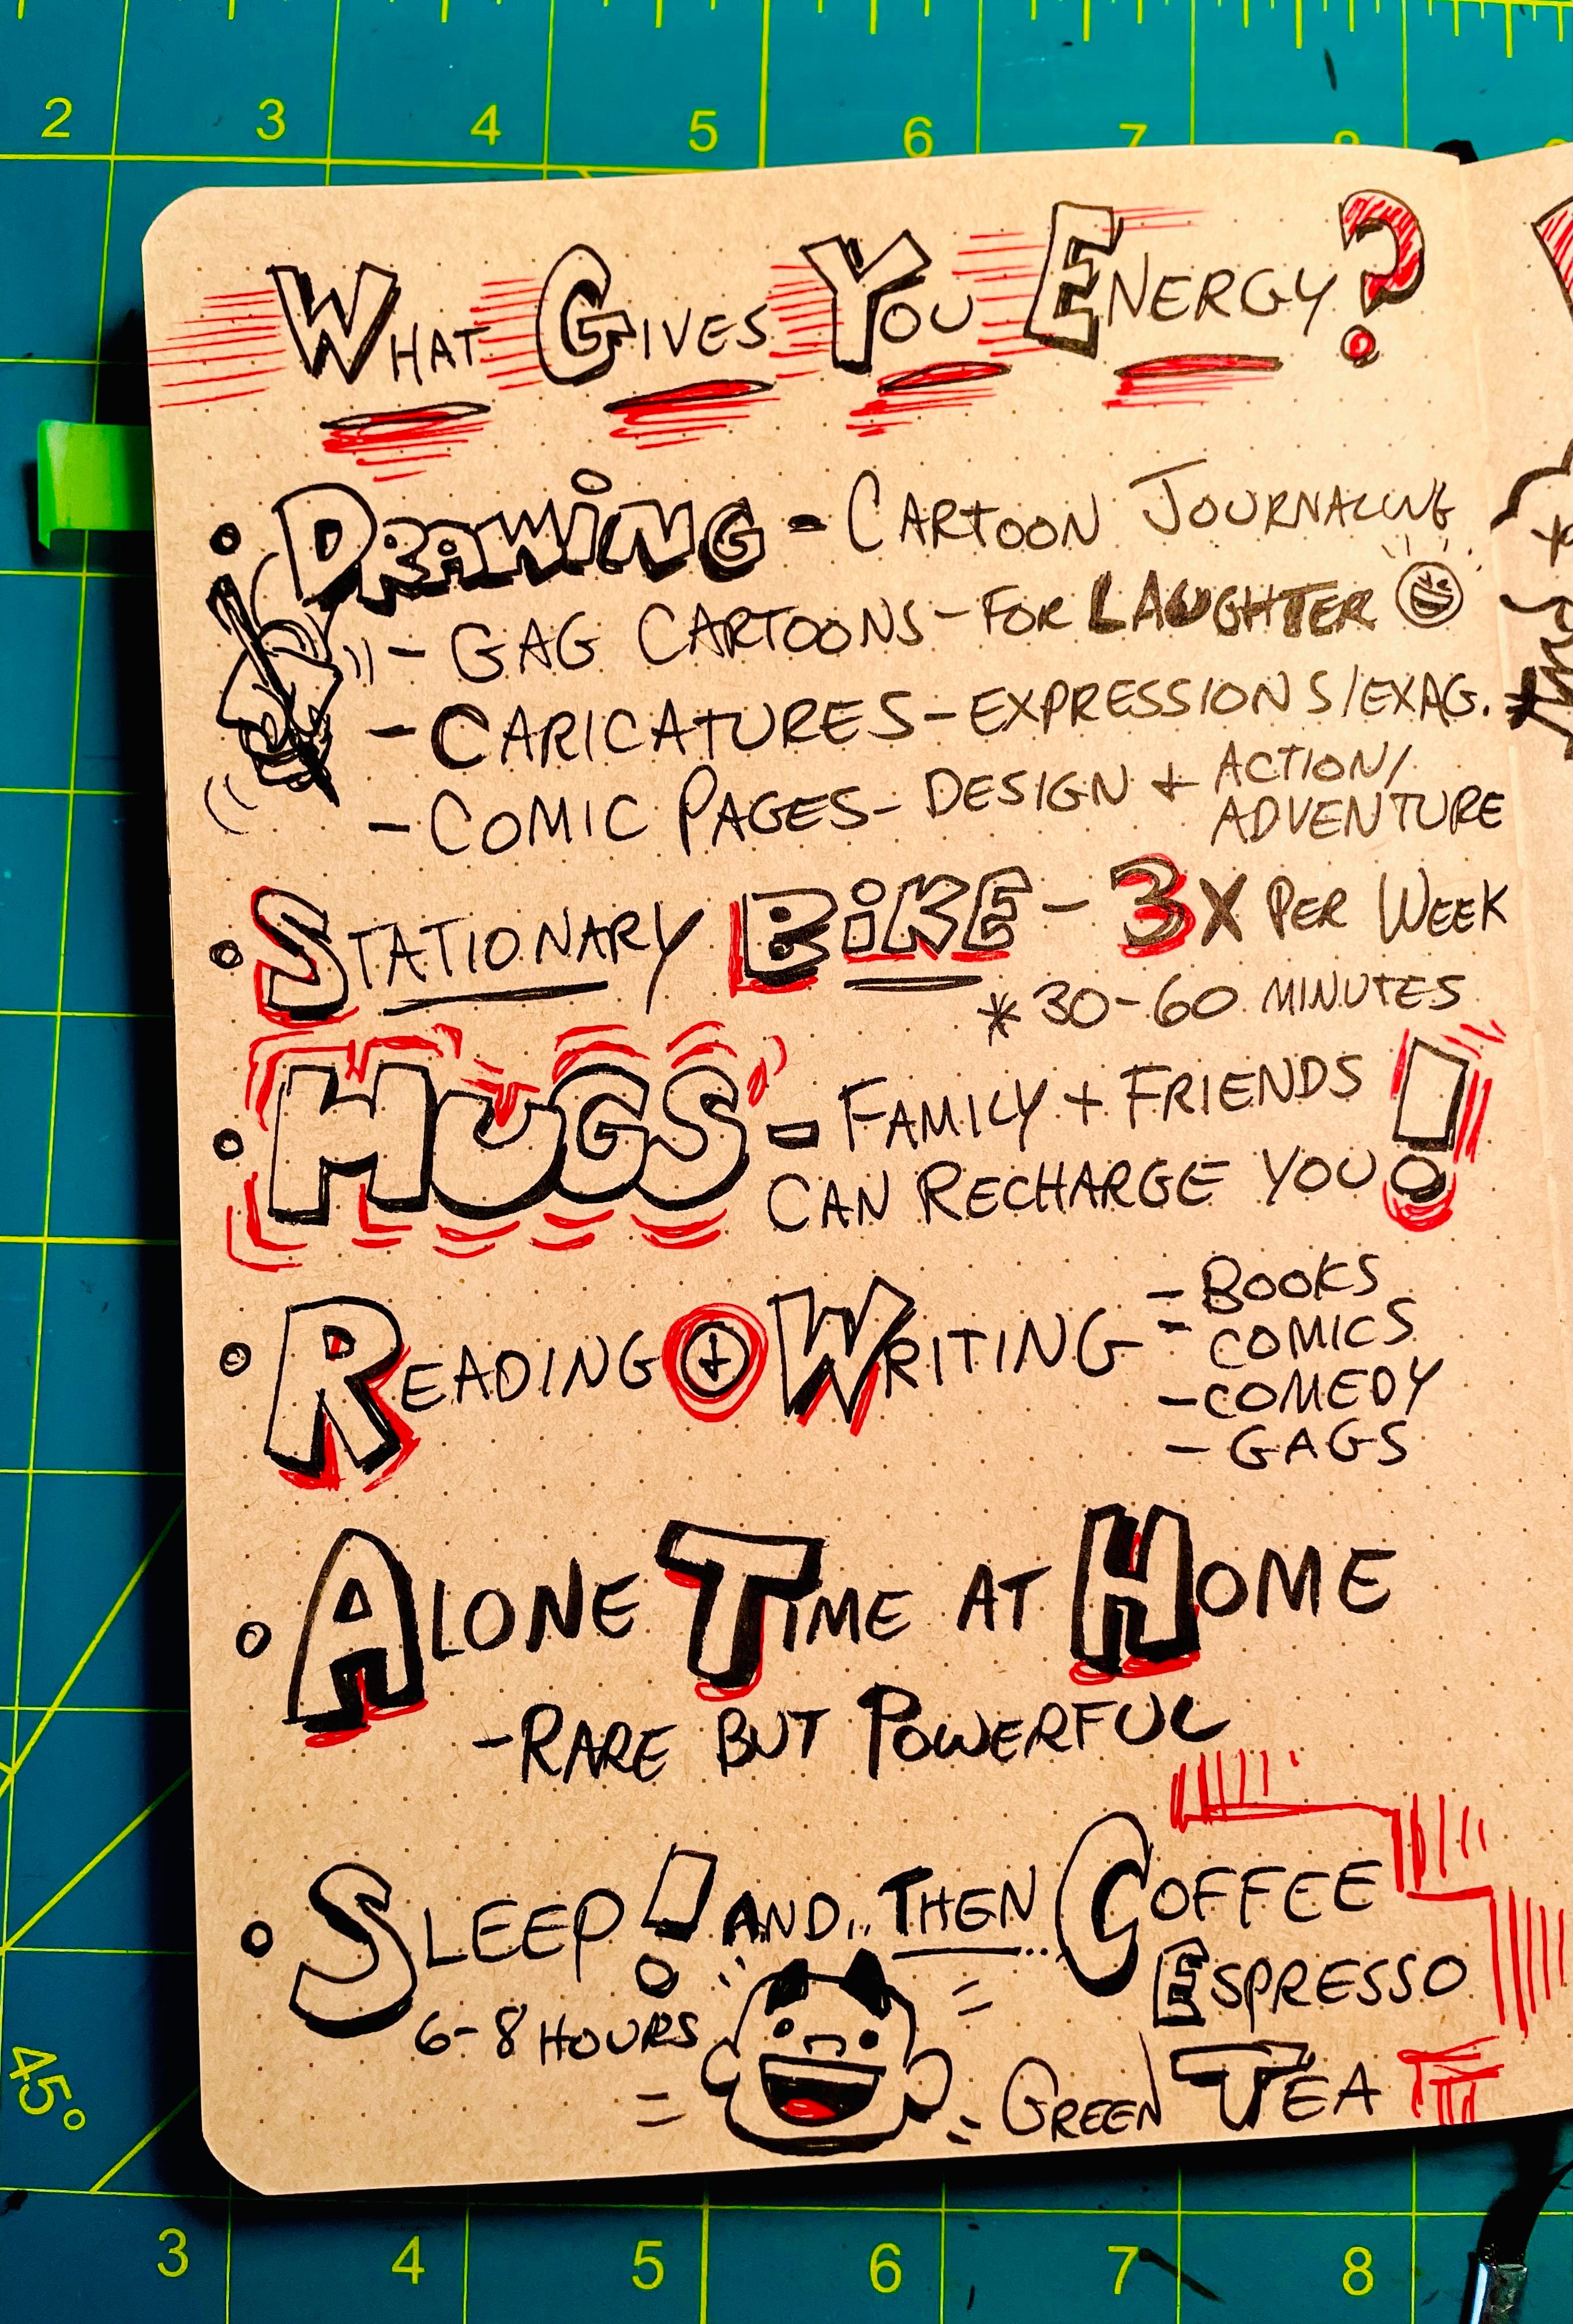 2 3 4 5 6 7 8
WHAT GIVES YOU ENERGY?
• DRAWING - CARTOON JOURNALING
- GAG CARTOONS - FOR LAUGHTER
- CARICATURES - EXPRESSIONS/EXAG.
- COMIC PAGES - DESIGN + ACTION/
ADVENTURE
• STATIONARY BIKE - 3X PER WEEK
* 30-60 MINUTES
• HUGS - FAMILY + FRIENDS
CAN RECHARGE YOU!
• READING + WRITING - BOOKS
- COMICS
- COMEDY
- GAGS
• ALONE TIME AT HOME
- RARE BUT POWERFUL
• SLEEP! AND... THEN... COFFEE
ESPRESSO
6-8 HOURS
GREEN TEA
45°
3 4 5 6 7 8